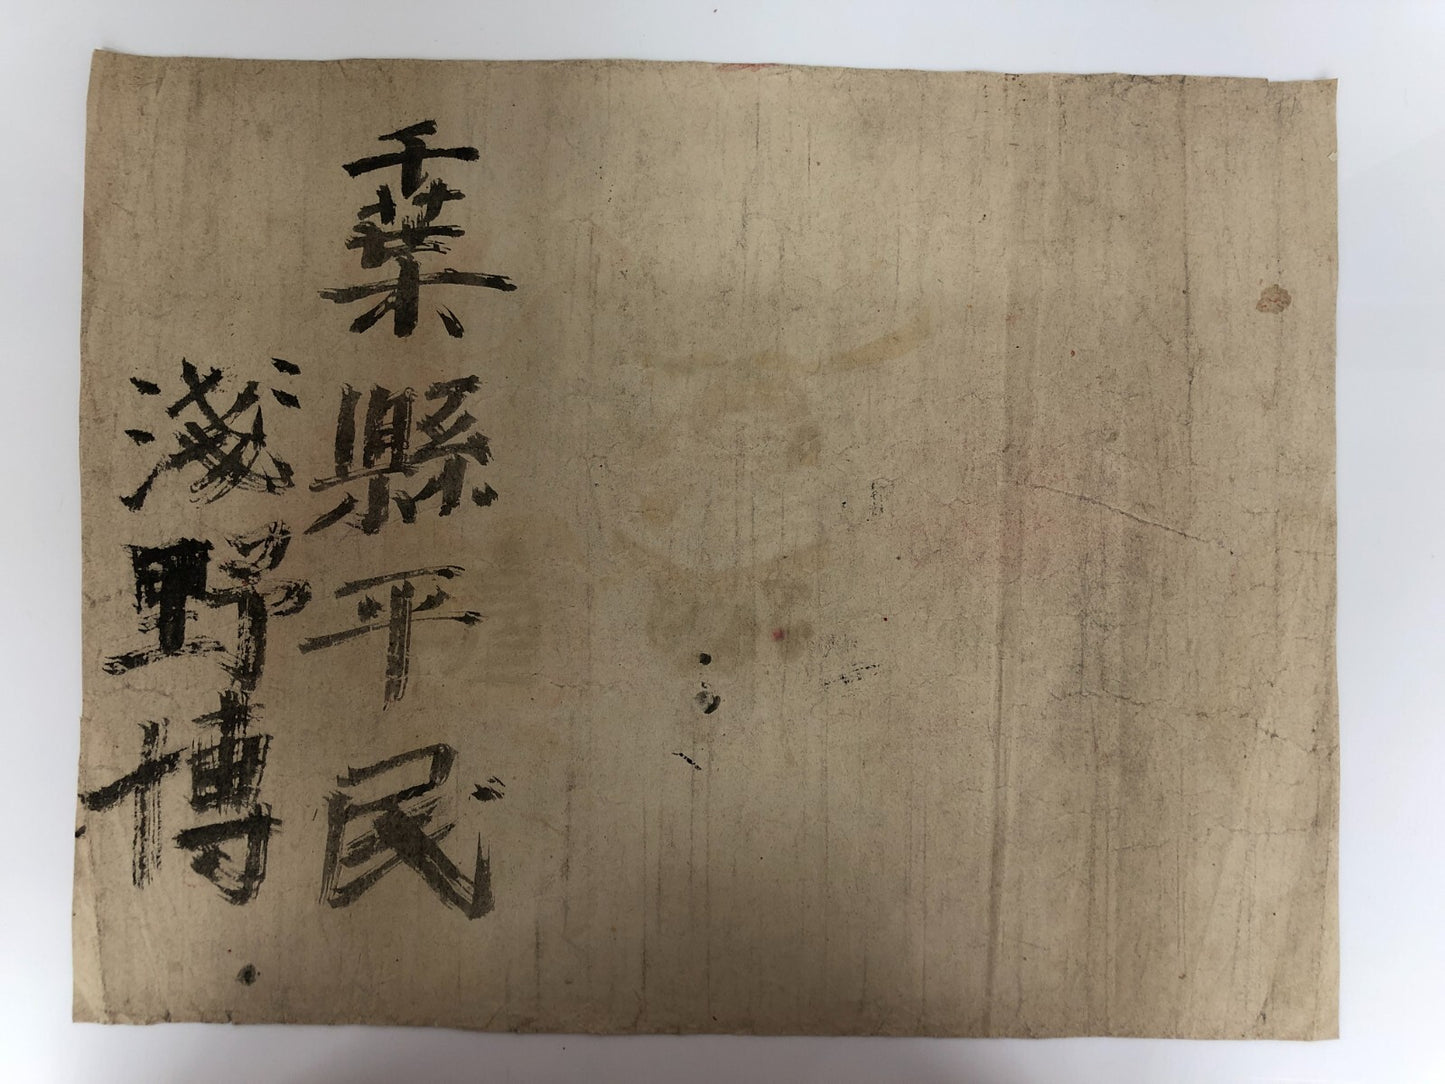 千葉縣平民
淺野博